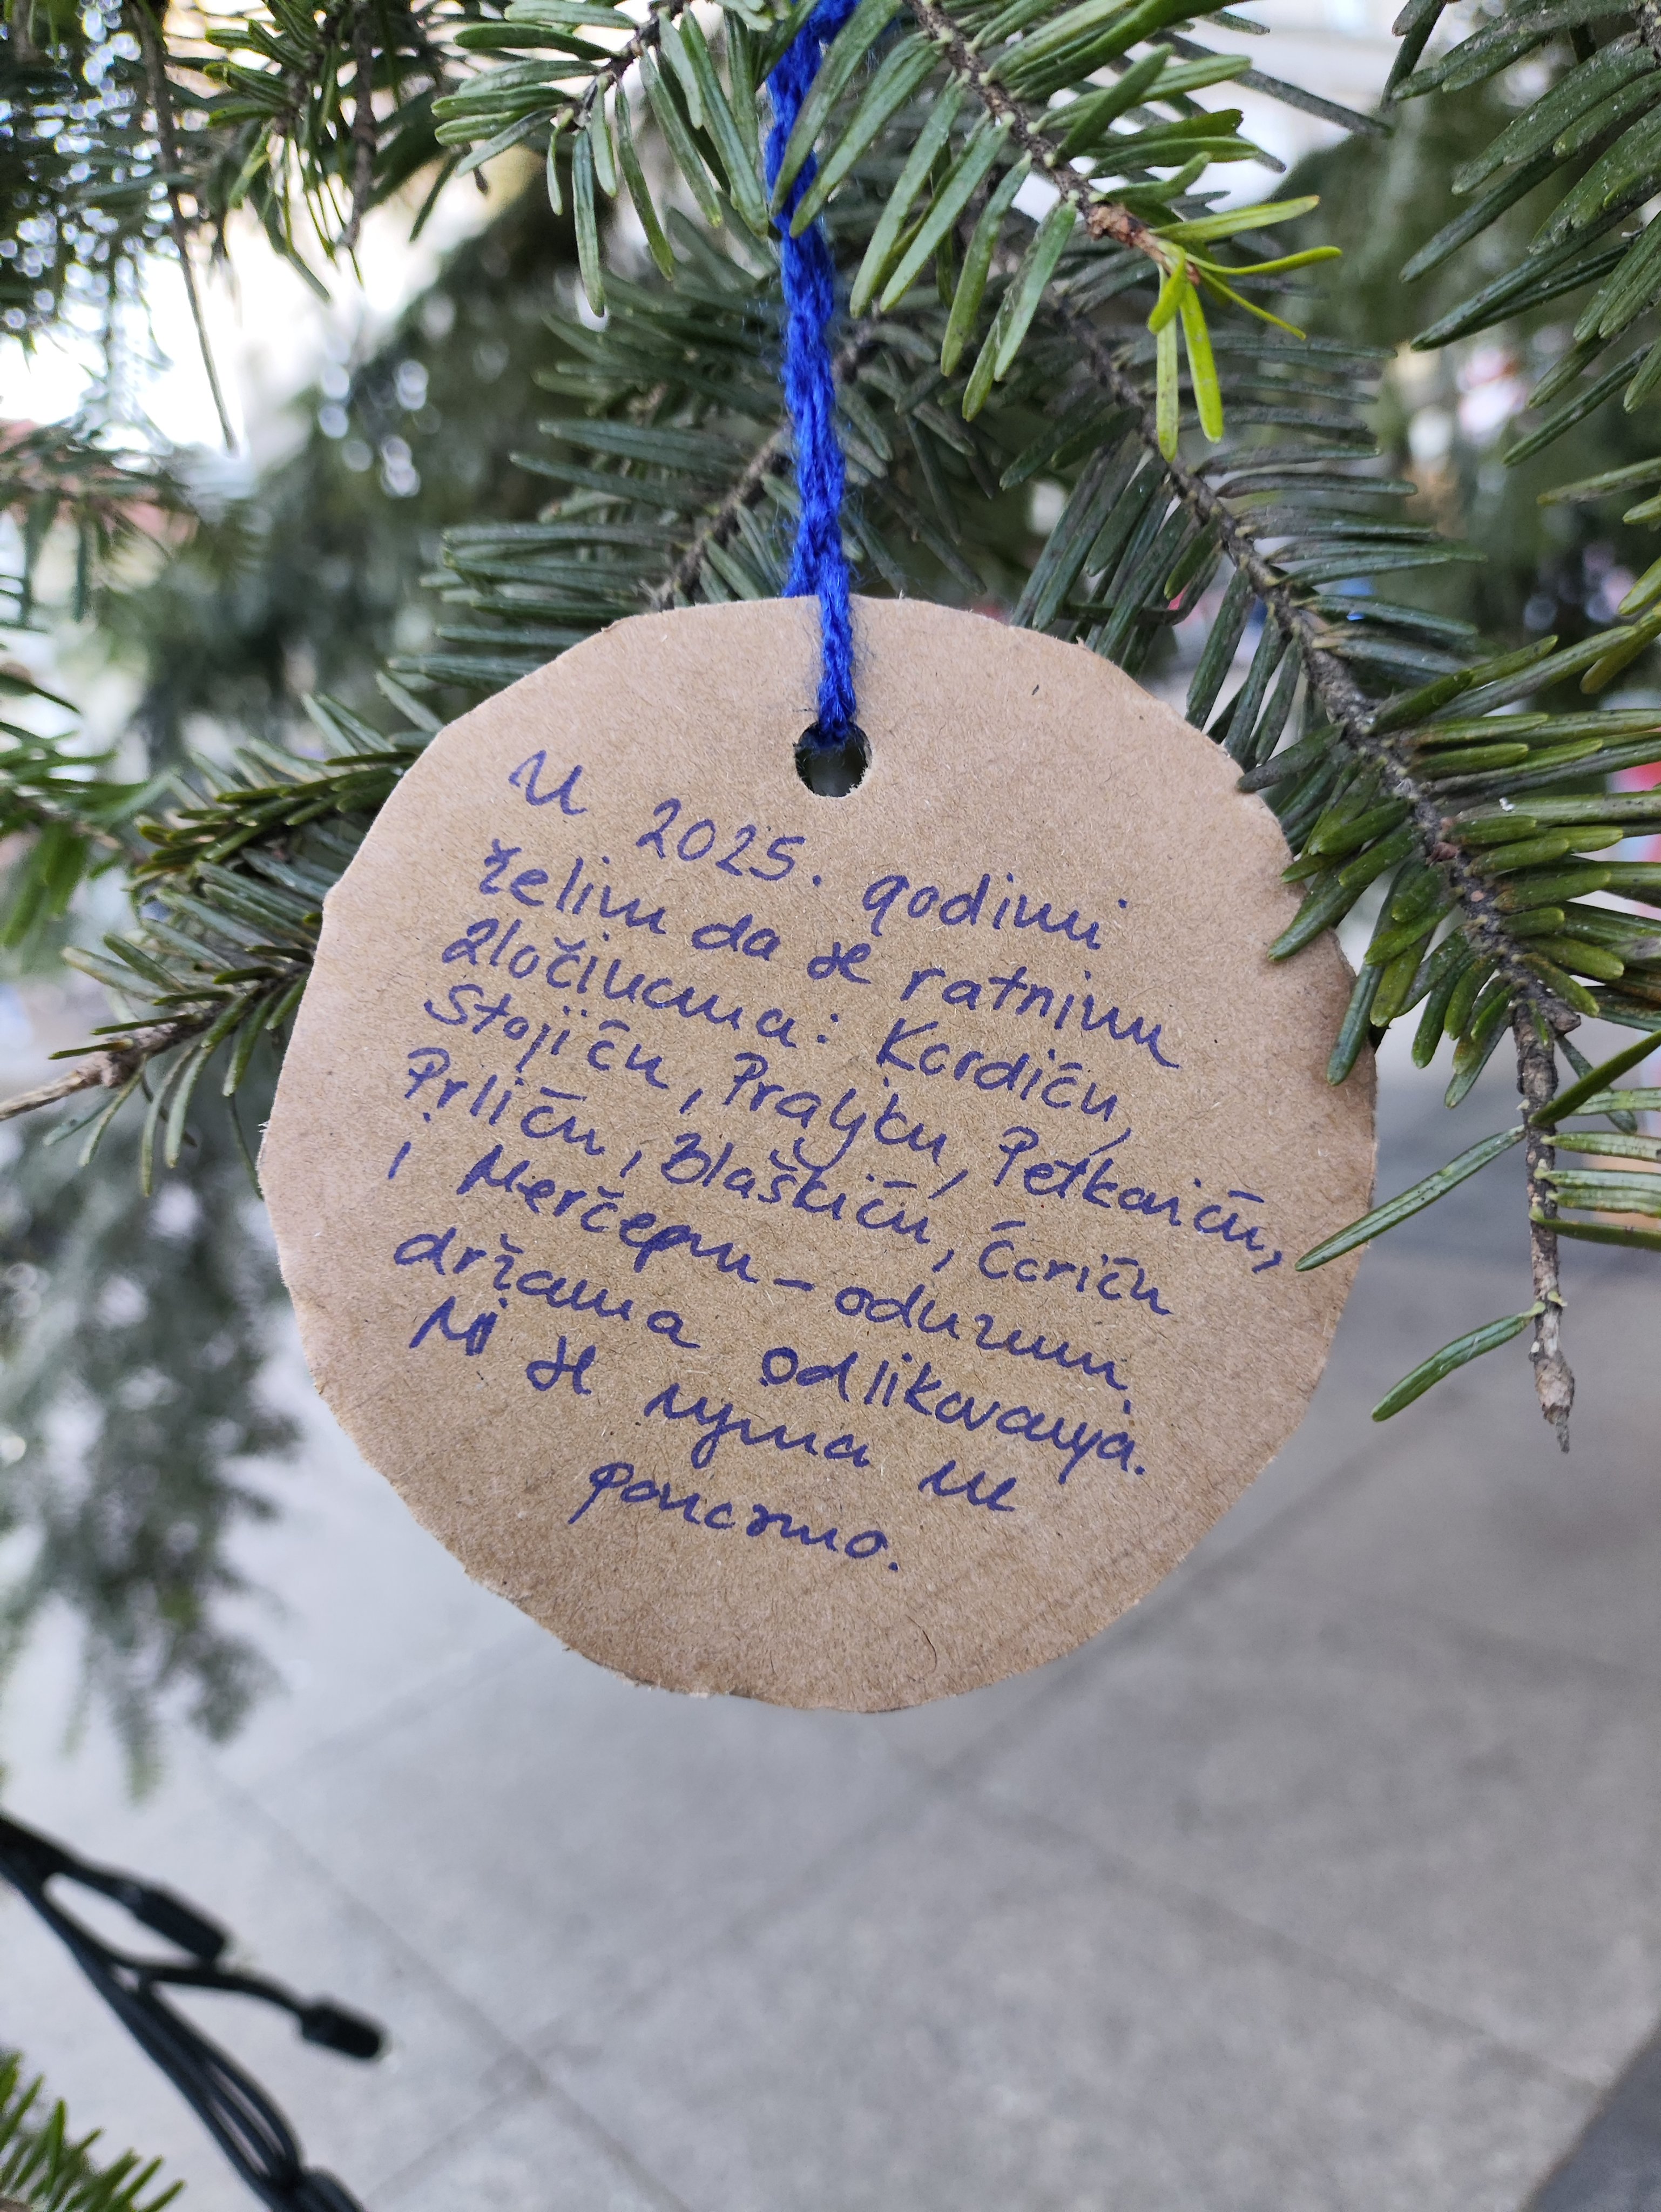 U 2025. godini
želim da se ratnim
zločincima: Kordiću,
Stojiću, Praljku, Petkoviću,
Prliću, Blaškiću, Ćoriću
i Merčepu - oduzmu
državna odlikovanja.
Mi se njima ne
ponosimo.